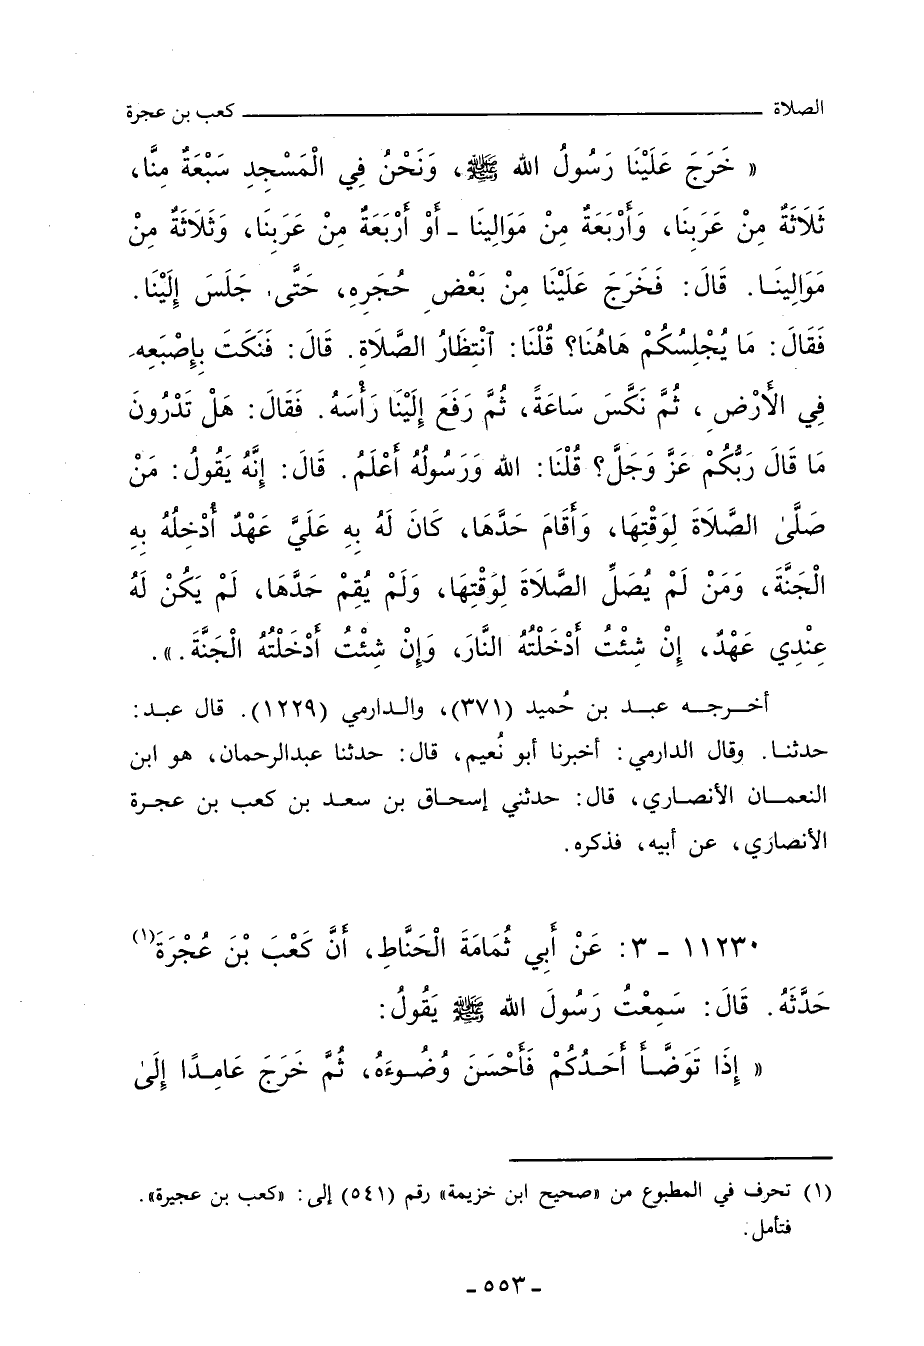 الصلاة ــــــــ كعب بن عجرة
« خَرَجَ عَلَيْنَا رَسُولُ الله ﷺ، وَنَحْنُ فِي الْمَسْجِدِ سَبْعَةٌ مِنَّا،
ثَلَاثَةٌ مِنْ عَرَبِنَا، وَأَرْبَعَةٌ مِنْ مَوَالِينَا ـ أَوْ أَرْبَعَةٌ مِنْ عَرَبِنَا، وَثَلَاثَةٌ مِنْ
مَوَالِينَا. قَالَ: فَخَرَجَ عَلَيْنَا مِنْ بَعْضِ حُجَرِهِ، حَتَّى جَلَسَ إِلَيْنَا.
فَقَالَ: مَا يُجْلِسُكُمْ هَاهُنَا؟ قُلْنَا: ٱنْتِظَارُ الصَّلَاةِ. قَالَ: فَنَكَتَ بِإِصْبَعِهِ
فِي الْأَرْضِ، ثُمَّ نَكَّسَ سَاعَةً، ثُمَّ رَفَعَ إِلَيْنَا رَأْسَهُ. فَقَالَ: هَلْ تَدْرُونَ
مَا قَالَ رَبُّكُمْ عَزَّ وَجَلَّ؟ قُلْنَا: الله وَرَسُولُهُ أَعْلَمُ. قَالَ: إِنَّهُ يَقُولُ: مَنْ
صَلَّىٰ الصَّلَاةَ لِوَقْتِهَا، وَأَقَامَ حَدَّهَا، كَانَ لَهُ بِهِ عَلَيَّ عَهْدٌ أُدْخِلُهُ بِهِ
الْجَنَّةَ، وَمَنْ لَمْ يُصَلِّ الصَّلَاةَ لِوَقْتِهَا، وَلَمْ يُقِمْ حَدَّهَا، لَمْ يَكُنْ لَهُ
عِنْدِي عَهْدٌ، إِنْ شِئْتُ أَدْخَلْتُهُ النَّارَ، وَإِنْ شِئْتُ أَدْخَلْتُهُ الْجَنَّةَ.».
أخرجه عبد بن حُميد (٣٧١)، والدارمي (١٢٢٩). قال عبد:
حدثنا. وقال الدارمي: أخبرنا أبو نُعيم، قال: حدثنا عبدالرحمان، هو ابن
النعمان الأنصاري، قال: حدثني إسحاق بن سعد بن كعب بن عجرة
الأنصاري، عن أبيه، فذكره.
١١٢٣٠ ـ ٣: عَنْ أَبِي ثُمَامَةَ الْحَنَّاطِ، أَنَّ كَعْبَ بْنَ عُجْرَةَ(١)
حَدَّثَهُ. قَالَ: سَمِعْتُ رَسُولَ الله ﷺ يَقُولُ:
« إِذَا تَوَضَّأَ أَحَدُكُمْ فَأَحْسَنَ وُضُوءَهُ، ثُمَّ خَرَجَ عَامِدًا إِلَىٰ
(١) تحرف في المطبوع من «صحيح ابن خزيمة» رقم (٥٤١) إلى: «كعب بن عجيرة».
فتأمل.
ـ ٥٥٣ ـ